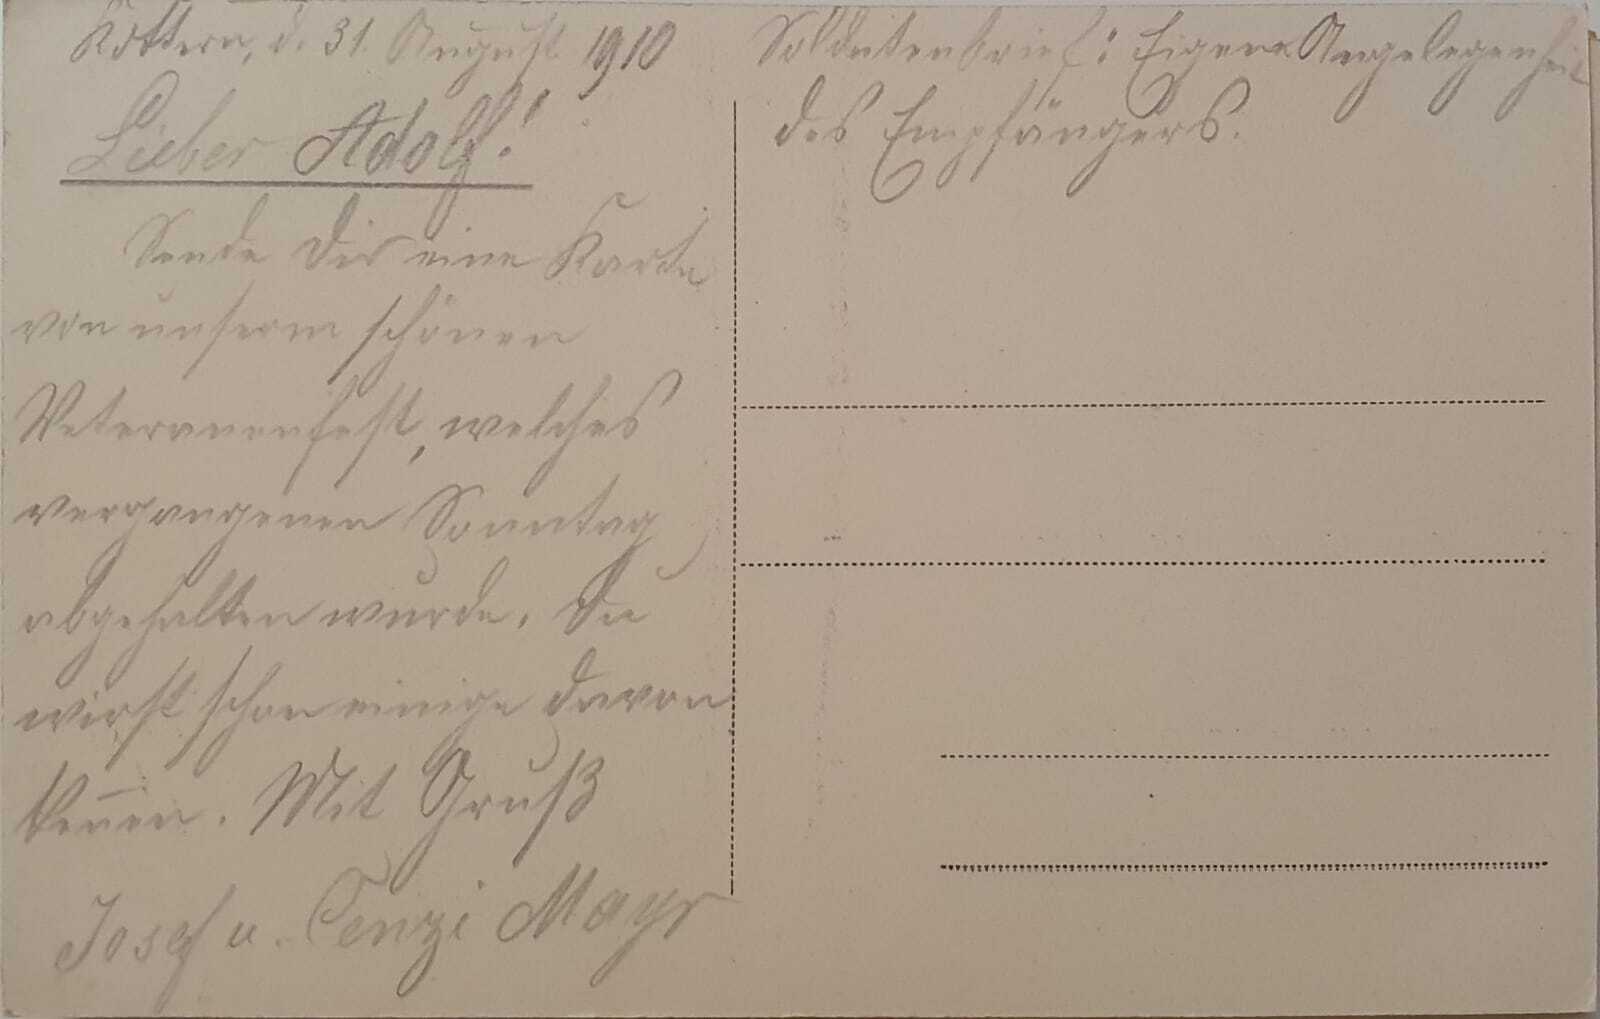 Kottern, d. 31. August 1910
Lieber Adolf!
Sende Dir eine Karte
von unserem schönen
Veteranenfest, welches
vergangenen Sonntag
abgehalten wurde. Du
wirst schon einige davon
kennen. Mit Gruß
Josef u. Cenzi Mayr
Soldatenbrief: Eigene Angelegenheit
des Empfängers.